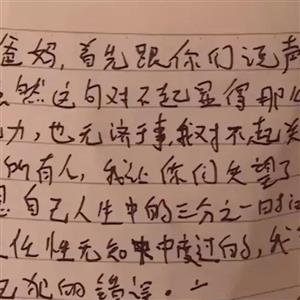 爸妈,首先跟你们说声
然这句对不起显得那么
力,也无济于事,我对不起关
所有人,我让你们失望了
自己人生中的三分之一时
任性无知中度过的,我
犯的错误。